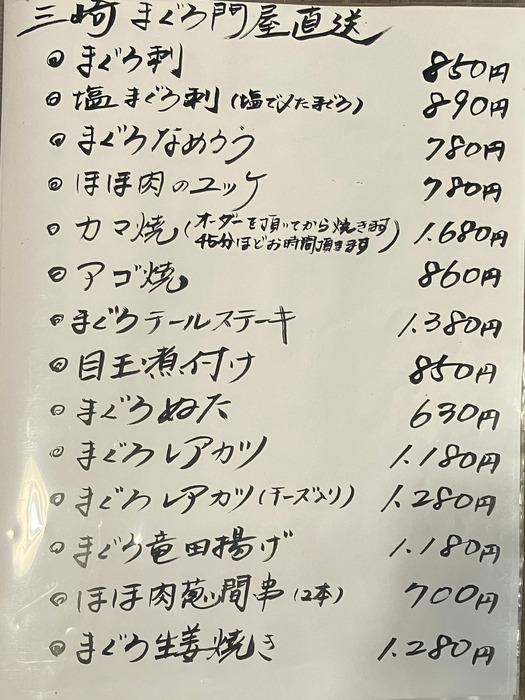 三崎まぐろ問屋直送
◎まぐろ刺 850円
◎塩まぐろ刺(塩で〆たまぐろ) 890円
◎まぐろなめろう 780円
◎ほほ肉のユッケ 780円
◎カマ焼(オーダーを頂いてから焼きます 45分ほどお時間頂きます) 1.680円
◎アゴ焼 860円
◎まぐろテールステーキ 1.380円
◎目玉煮付け 850円
◎まぐろぬた 630円
◎まぐろレアカツ 1.180円
◎まぐろレアカツ(チーズ入り) 1.280円
◎まぐろ竜田揚げ 1.180円
◎ほほ肉葱間串(2本) 700円
◎まぐろ生姜焼き 1.280円